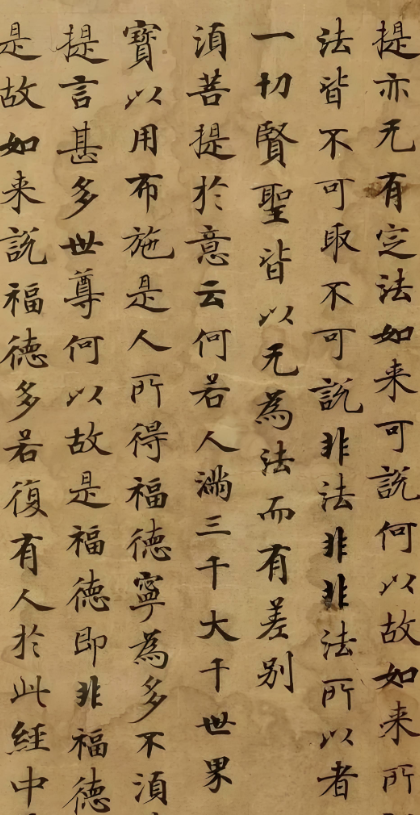 提亦无有定法如来可說何以故如来所
法皆不可取不可說非法非非法所以者
一切賢聖皆以无為法而有差别
湏菩提於意云何若人滿三千大千世界
寶以用布施是人所得福徳寧為多不湏
提言甚多世尊何以故是福徳即非福徳
是故如来說福徳多若復有人於此經中